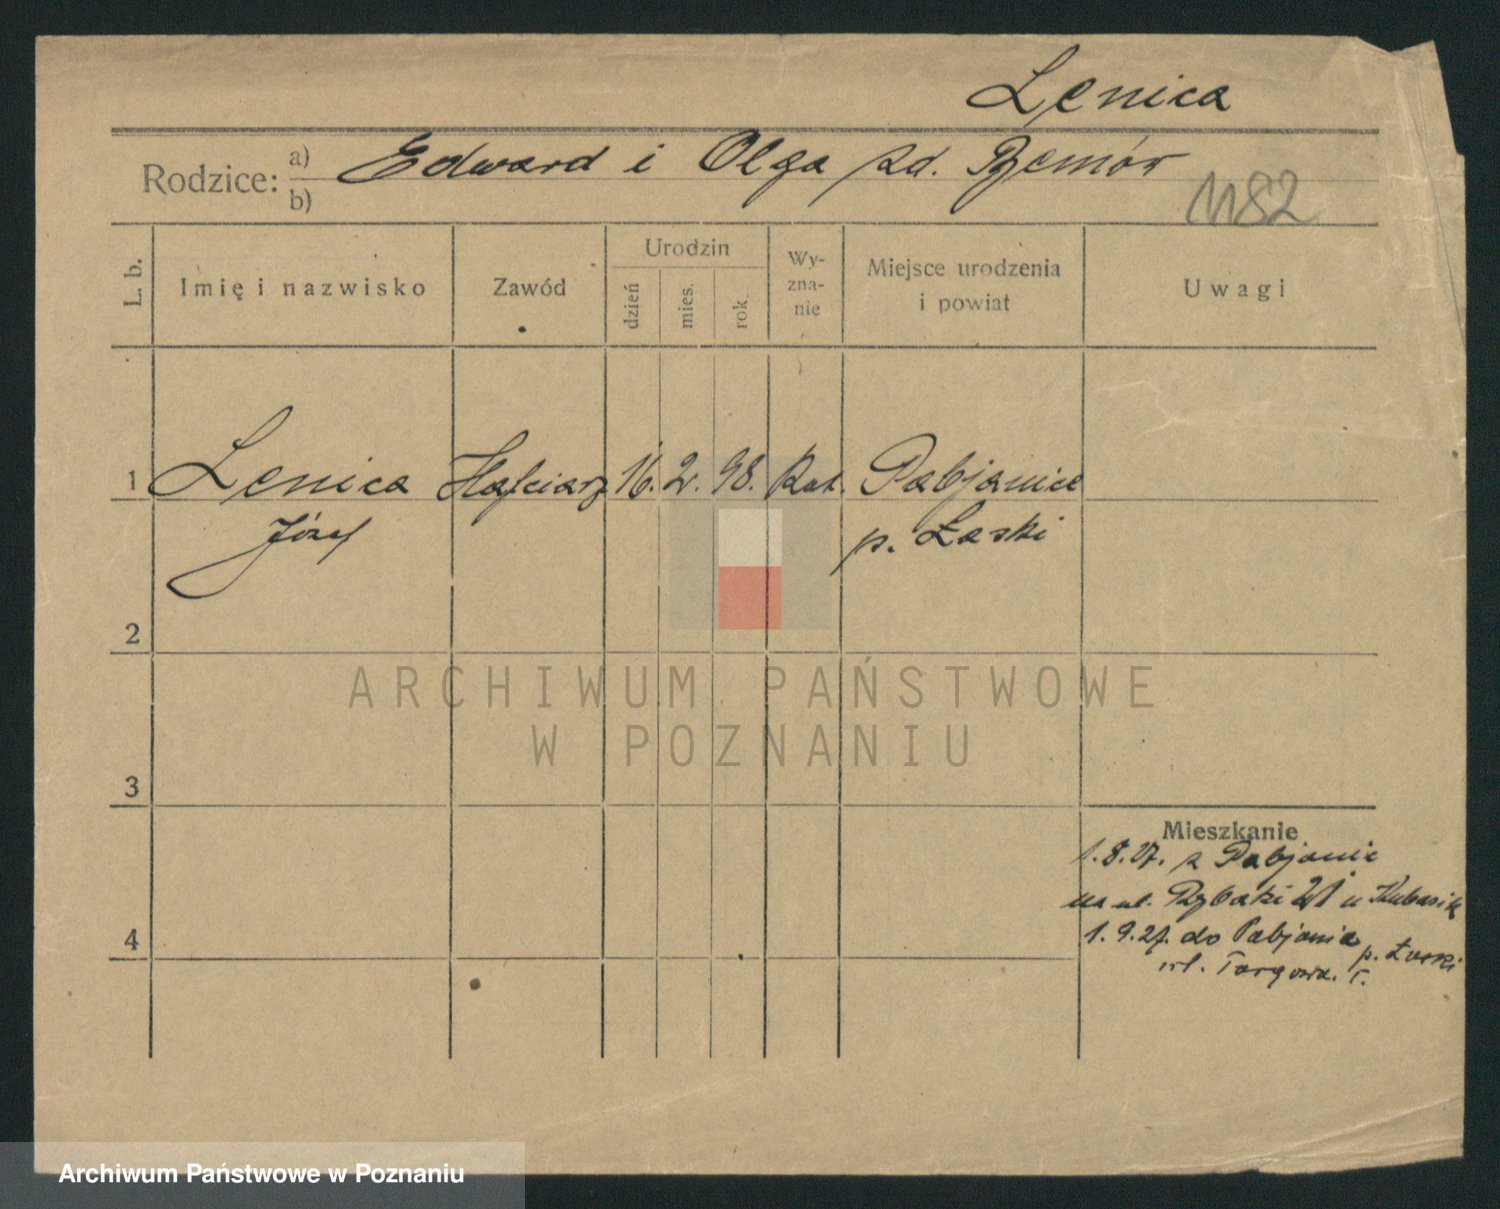 Lenica
Rodzice: a) Edward i Olga zd.
b)
1182
L. b.
Imię i nazwisko
Zawód
Urodzin
dzień
mies.
rok
Wy-
zna-
nie
Miejsce urodzenia
i powiat
Uwagi
1 Lenica Hafciarz 16. 2. 98. Kat. Pabjanice
Józef p. Łaski
2
3
4
Mieszkanie
1.8.27. z Pabjanic
na ul. Rybaki 21 u Kubasik
1.9.27. do Pabjanic p. Łaski
ul. Targowa.
ARCHIWUM PAŃSTWOWE
W POZNANIU
Archiwum Państwowe w Poznaniu